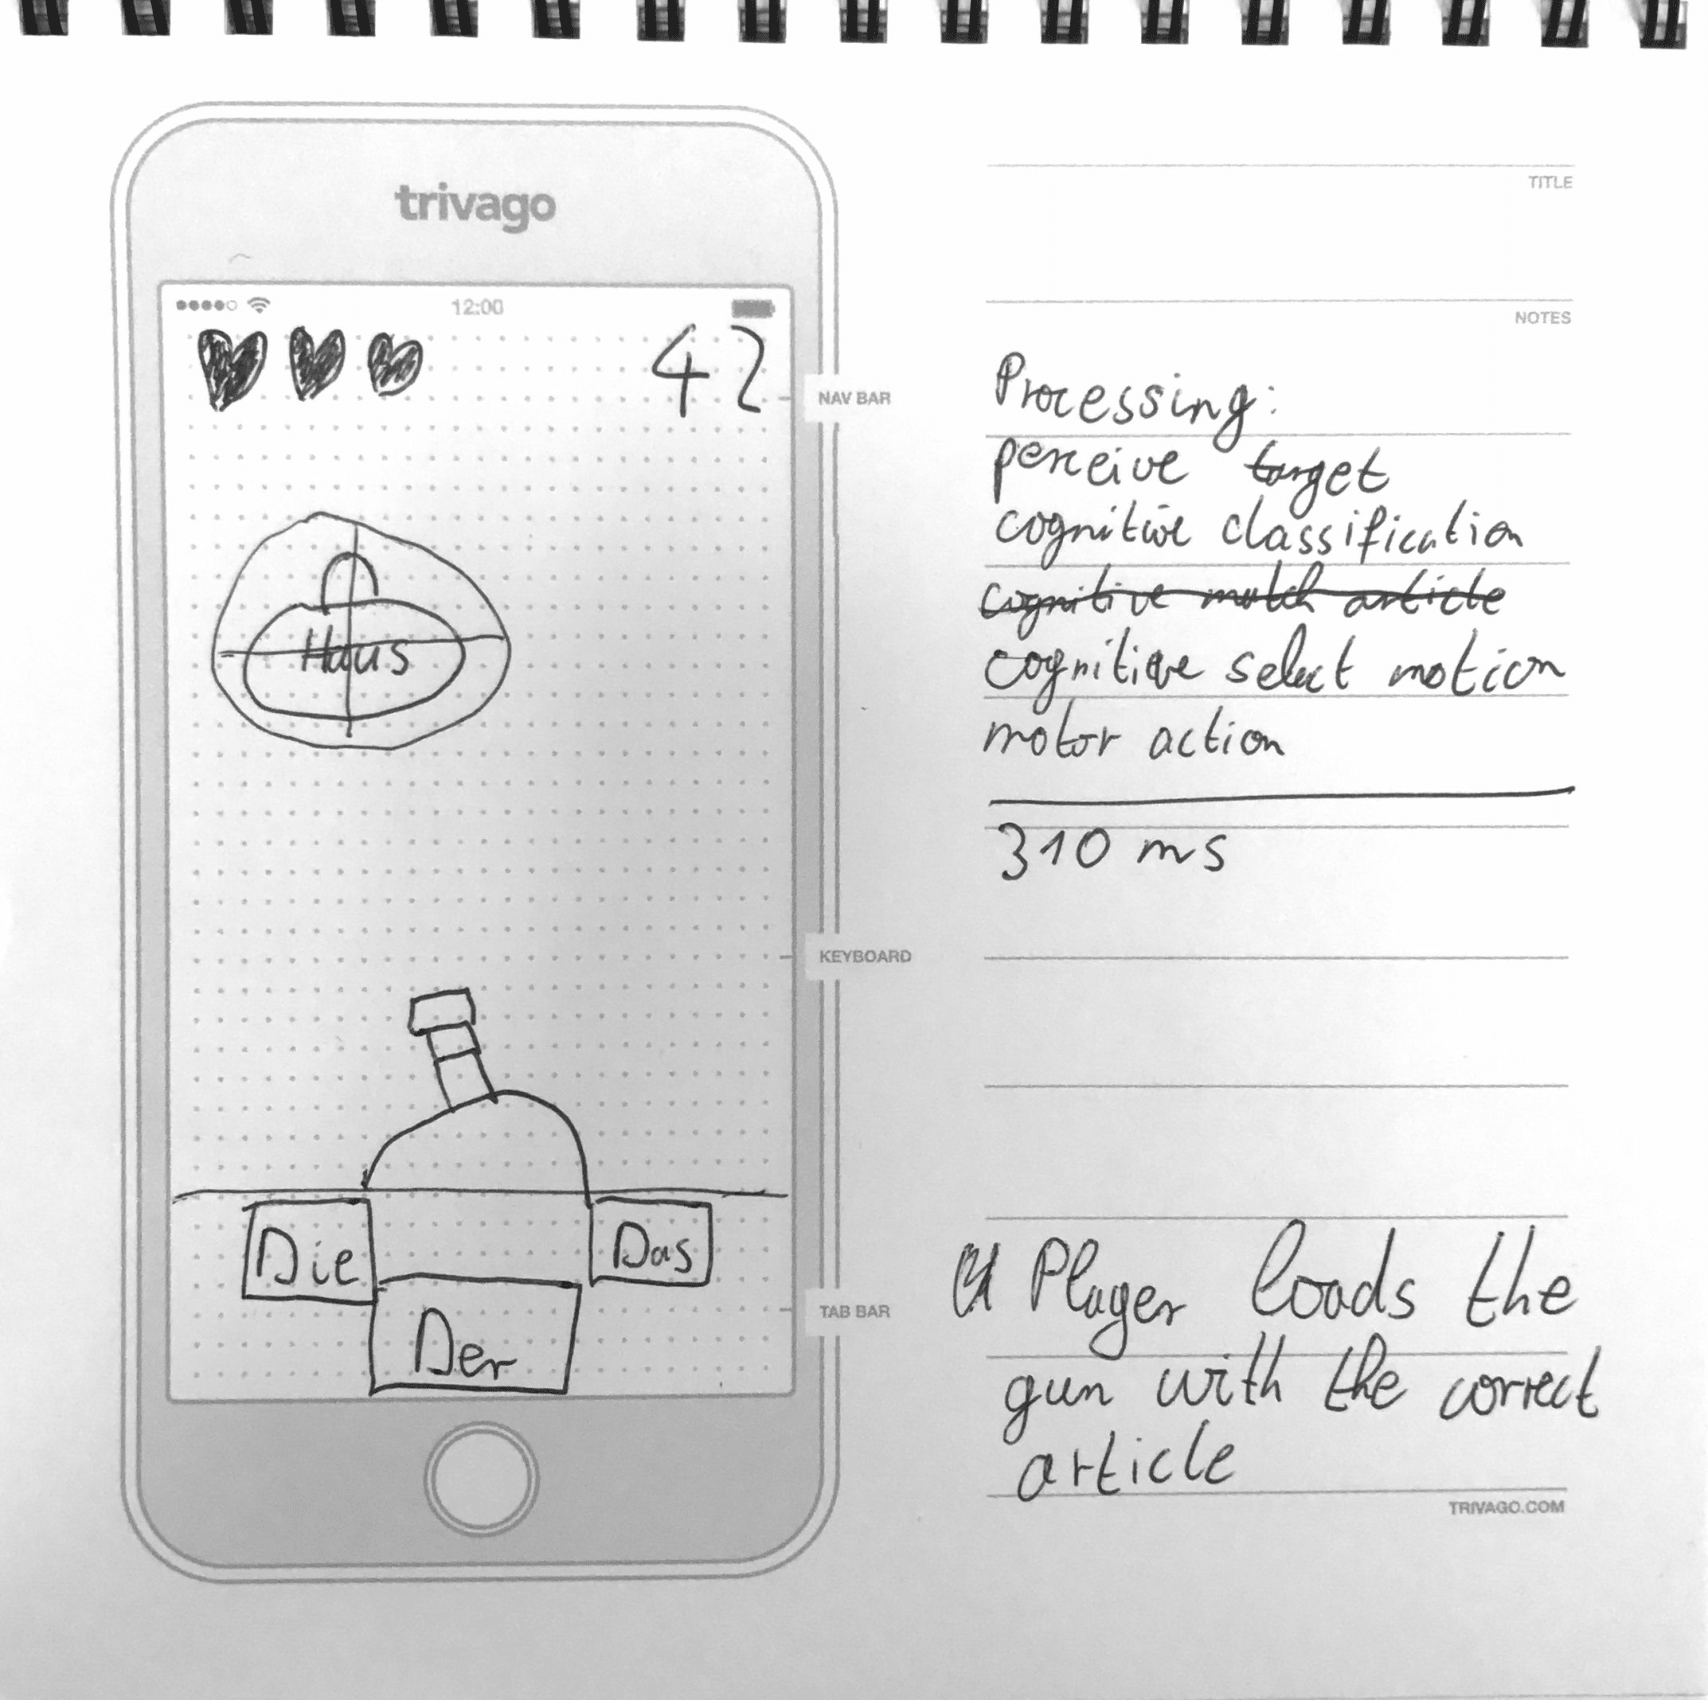 trivago
12:00
42
Haus
Die
Das
Der
NAV BAR
KEYBOARD
TAB BAR
TITLE
NOTES
Processing:
perceive target
cognitive classification
cognitive match article
cognitive select motion
motor action
310 ms
Player loads the
gun with the correct
article
TRIVAGO.COM